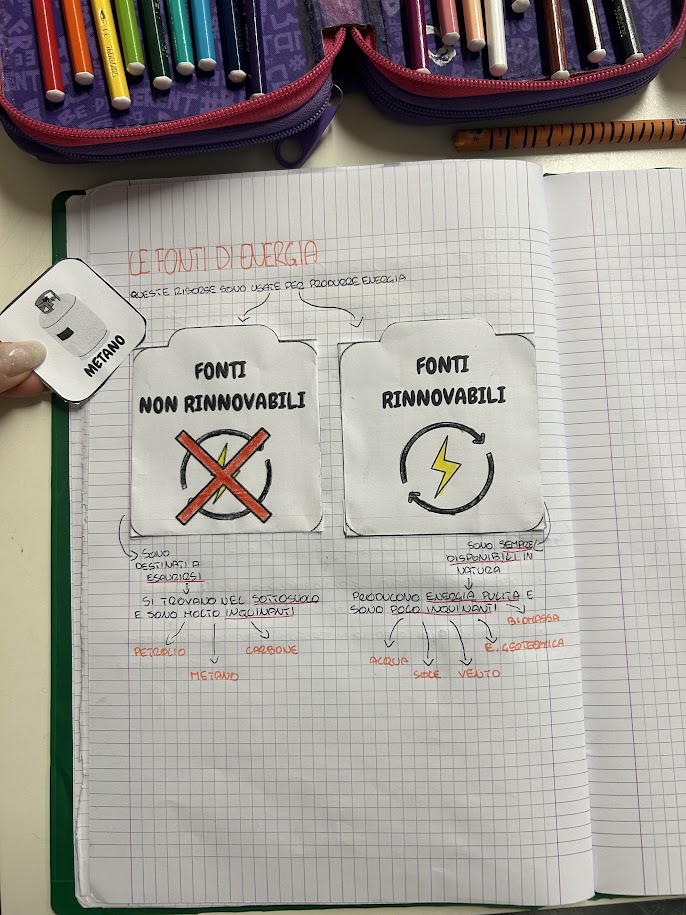 LE FONTI DI ENERGIA
QUESTE RISORSE SONO USATE PER PRODURRE ENERGIA
METANO
FONTI
NON RINNOVABILI
FONTI
RINNOVABILI
SONO
DESTINATI A
ESAURIRSI
SI TROVANO NEL SOTTOSUOLO
E SONO MOLTO INQUINANTI
PETROLIO
METANO
CARBONE
SONO SEMPRE
DISPONIBILI IN
NATURA
PRODUCONO ENERGIA PULITA E
SONO POCO INQUINANTI
BIOMASSA
E. GEOTERMICA
ACQUA
SOLE
VENTO